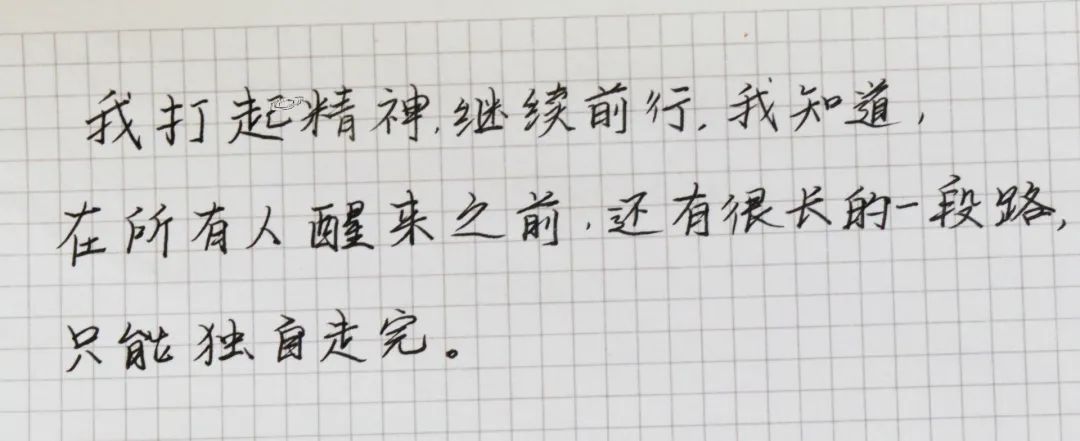 我打起精神,继续前行,我知道,
在所有人醒来之前,还有很长的一段路,
只能独自走完。